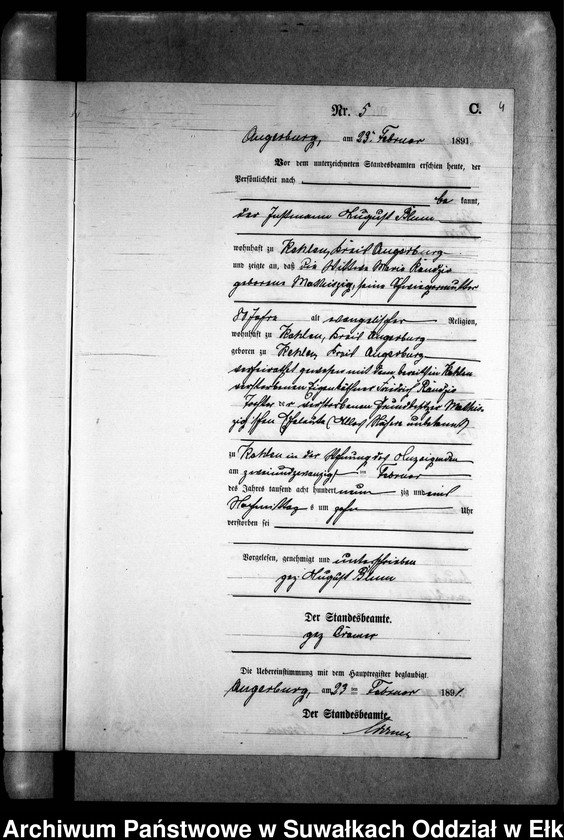 4
Nr. 5 C.
Angerburg, am 23ten Februar 1891
Vor dem unterzeichneten Standesbeamten erschien heute, der
Persönlichkeit nach
be kannt,
der Instmann August Blum
wohnhaft zu Kehlen, Kreis Angerburg
und zeigte an, daß die Wittwe Marie Randzio
geborene Mathiszig, seine Schwiegermutter
80 Jahre alt evangelischer Religion,
wohnhaft zu Kehlen, Kreis Angerburg
geboren zu Kehlen, Kreis Angerburg
verheirathet gewesen mit dem bereits in Kehlen
verstorbenen Eigenkäthner Friedrich Randzio
Tochter der verstorbenen Grundbesitzer Mathis-
zig'schen Eheleute (Alles Nähere unbekannt)
zu Kehlen in der Wohnung des Anzeigenden
am zweiundzwanzigsten Februar
des Jahres tausend acht hundert neun zig und eins
Nachmittag s um zehn Uhr
verstorben sei
Vorgelesen, genehmigt und unterschrieben
gez. August Blum
Der Standesbeamte.
gez
Die Uebereinstimmung mit dem Hauptregister beglaubigt
Angerburg, am 23 ten Februar 1891.
Der Standesbeamte
Archiwum Państwowe w Suwałkach Oddział w Ełk